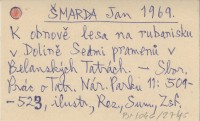 ŠMARDA Jan 1969.
K obnově lesa na rubanisku
v Dolině Sedmi pramenů v
Belanských Tatrách. — Sbor.
Prác o Tatr. Nár. Parku 11: 501-
-523, ilustr., Res., Sum., Zsf.